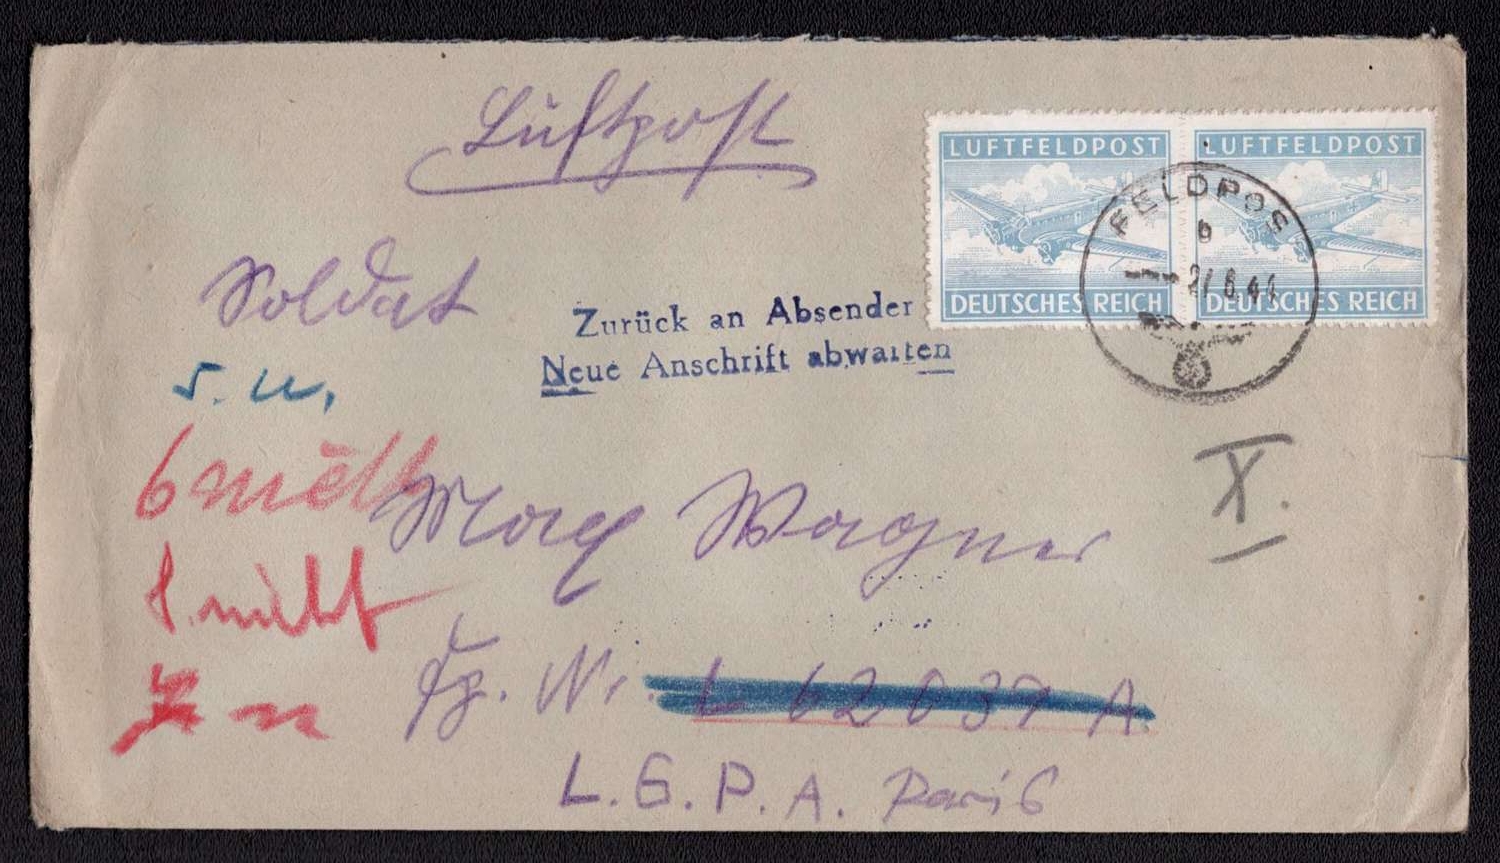 Luftpost
LUFTFELDPOST
DEUTSCHES REICH
LUFTFELDPOST
DEUTSCHES REICH
FELDPOS
b
Soldat
Zurück an Absender
Neue Anschrift abwarten
s. u.
X.
Max Wagner
Fp. Nr. L 62037 A.
L.G.P.A. Paris